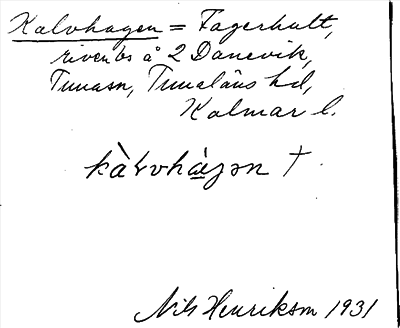 Kalvhagen = Fagerhult,
riven bs å 2 Danevik,
Tunasn, Tunaläns hd,
Kalmar l.
kàlvhágən †
Nils Henrikson 1931